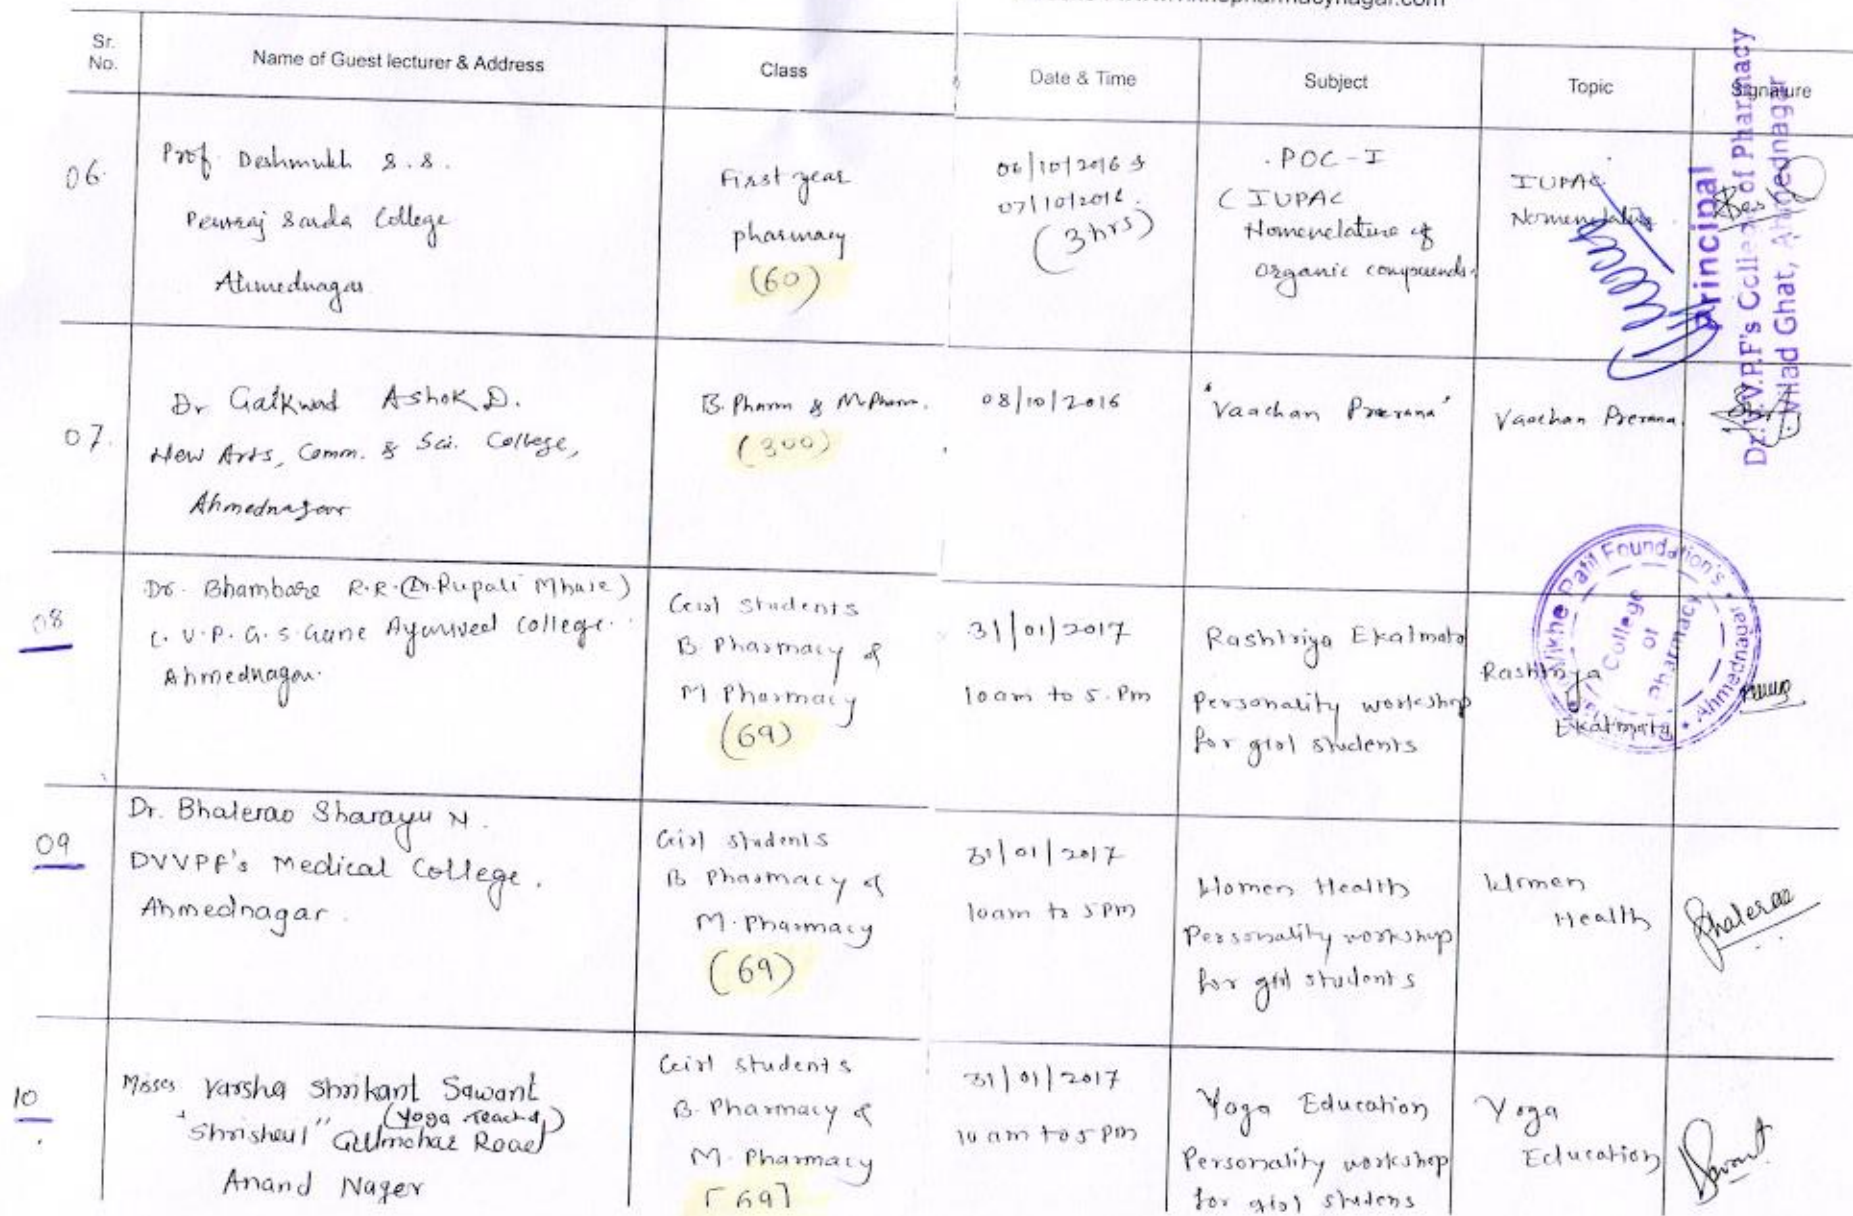 Sr.
No.
Name of Guest lecturer & Address
Class
Date & Time
Subject
Topic
Signature
06.
Prof. Deshmukh S.S.
Pemraj Sarda College
Ahmednagar
First year
pharmacy
(60)
06/10/2016 &
07/10/2016.
(3hrs)
POC-I
(IUPAC
Nomenclature of
organic compounds.
IUPAC
Nomenclature
07.
Dr Gaikwad Ashok D.
New Arts, Comm. & Sci. College,
Ahmednagar
B. Pharm & M Pharm.
(300)
08/10/2016
"Vaachan Prerana"
Vaachan Prerana
08
Dr. Bhambare R.R. (Dr. Rupali Mhase)
C.V.P.G.S. Gune Ayurved College.
Ahmednagar.
Girl students
B. Pharmacy &
M Pharmacy
(69)
31/01/2017
10am to 5.Pm
Rashtriya Ekatmata
Personality workshop
for girl students
Rashtriya
Ekatmata
09
Dr. Bhalerao Sharayu N.
DVVPF's Medical College.
Ahmednagar.
Girl students
B Pharmacy &
M. Pharmacy
(69)
31/01/2017
10am to 5pm
Women Health
Personality workshop
for girl students
Women
Health
Bhalerao
10
Misses Varsha Shrikant Sawant
(Yoga Teacher)
"Shrisheul" Gulmohar Road
Anand Nager
Girl students
B. Pharmacy &
M. Pharmacy
[69]
31/01/2017
10 am to 5 pm
Yoga Education
Personality workshop
for girl studens
Yoga
Education
Sawant
Principal
Dr.V.V.P.F's College of Pharmacy
Vilad Ghat, Ahmednagar
Vikhe Patil Foundation's
College
of
Pharmacy
Ahmednagar